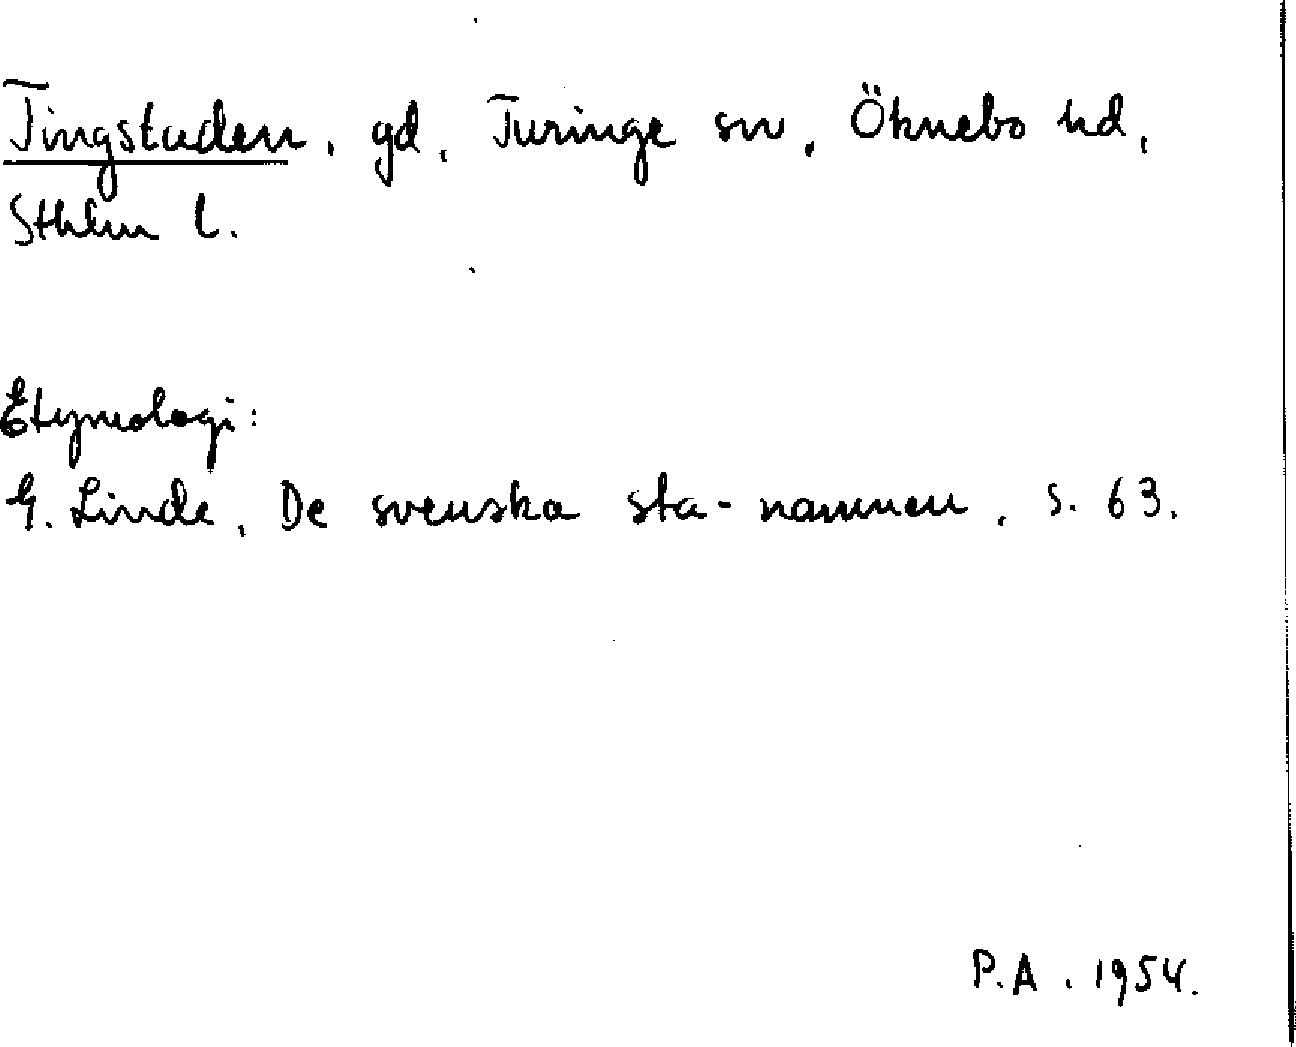 Tingstaden, gd, Turinge sn, Öknebo hd,
Sthlm l.
Etymologi:
G. Linde, De svenska sta-namnen, s. 63.
P.A. 1954.